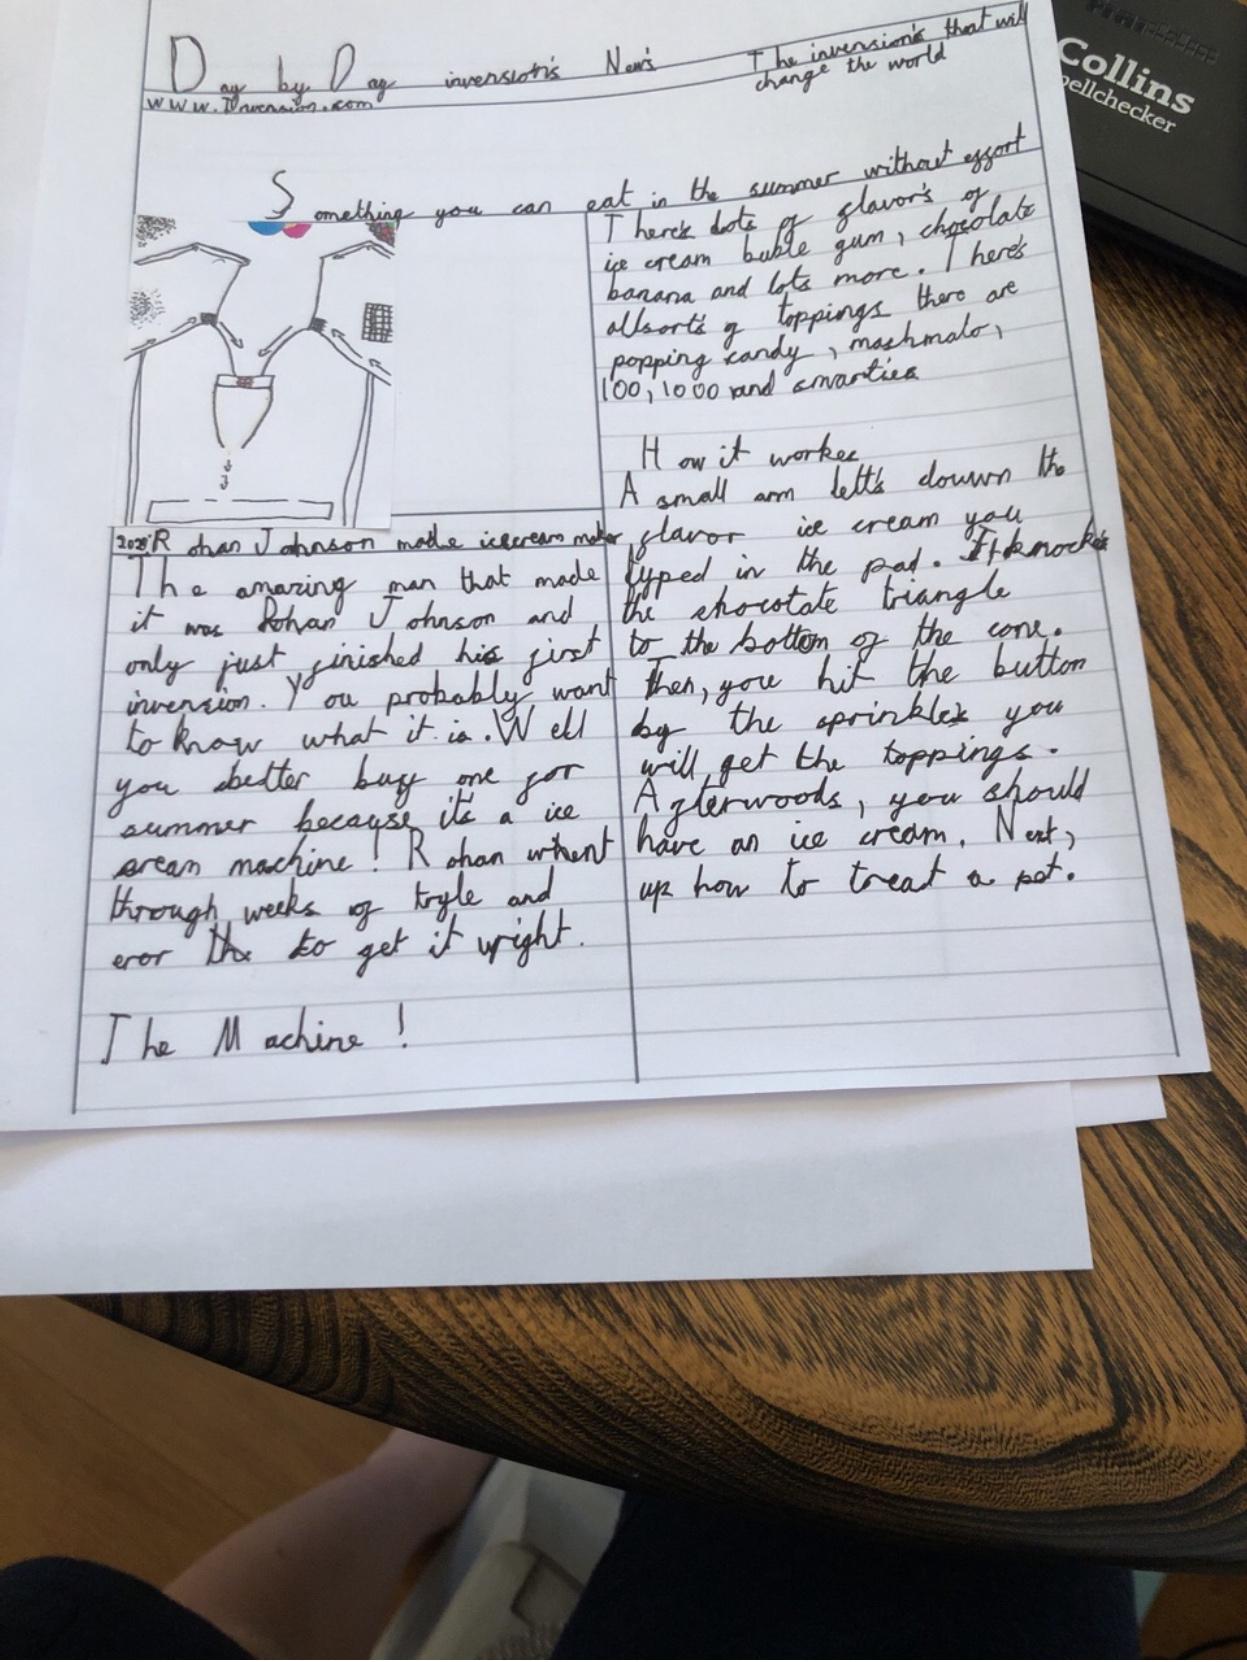 Day by Day invension's News
The invension's that will
change the world
www.Invension.com
Collins
pellchecker
Something you can eat in the summer without effort
2028 Rohan Johnson made icecream maker
The amazing man that made
it was Rohan Johnson and
only just finished his first
invension. You probably want
to know what it is. Well
you better buy one for
summer because it's a ice
cream machine! Rohan whent
through weeks of tryle and
eror to get it wright.
The Machine!
There's lots of flavor's of
ice cream buble gum, chocolate
banana and lots more. There's
allsort's of toppings there are
popping candy, mashmalo,
100,1000 and smarties
How it workes
A small arm lett's douwn the
flavor ice cream you
typed in the pad. It knocks
the chocotate triangle
to the bottom of the cone.
Then, you hit the button
by the sprinkles you
will get the toppings.
Afterwoods, you should
have an ice cream. Next,
up how to treat a pet.